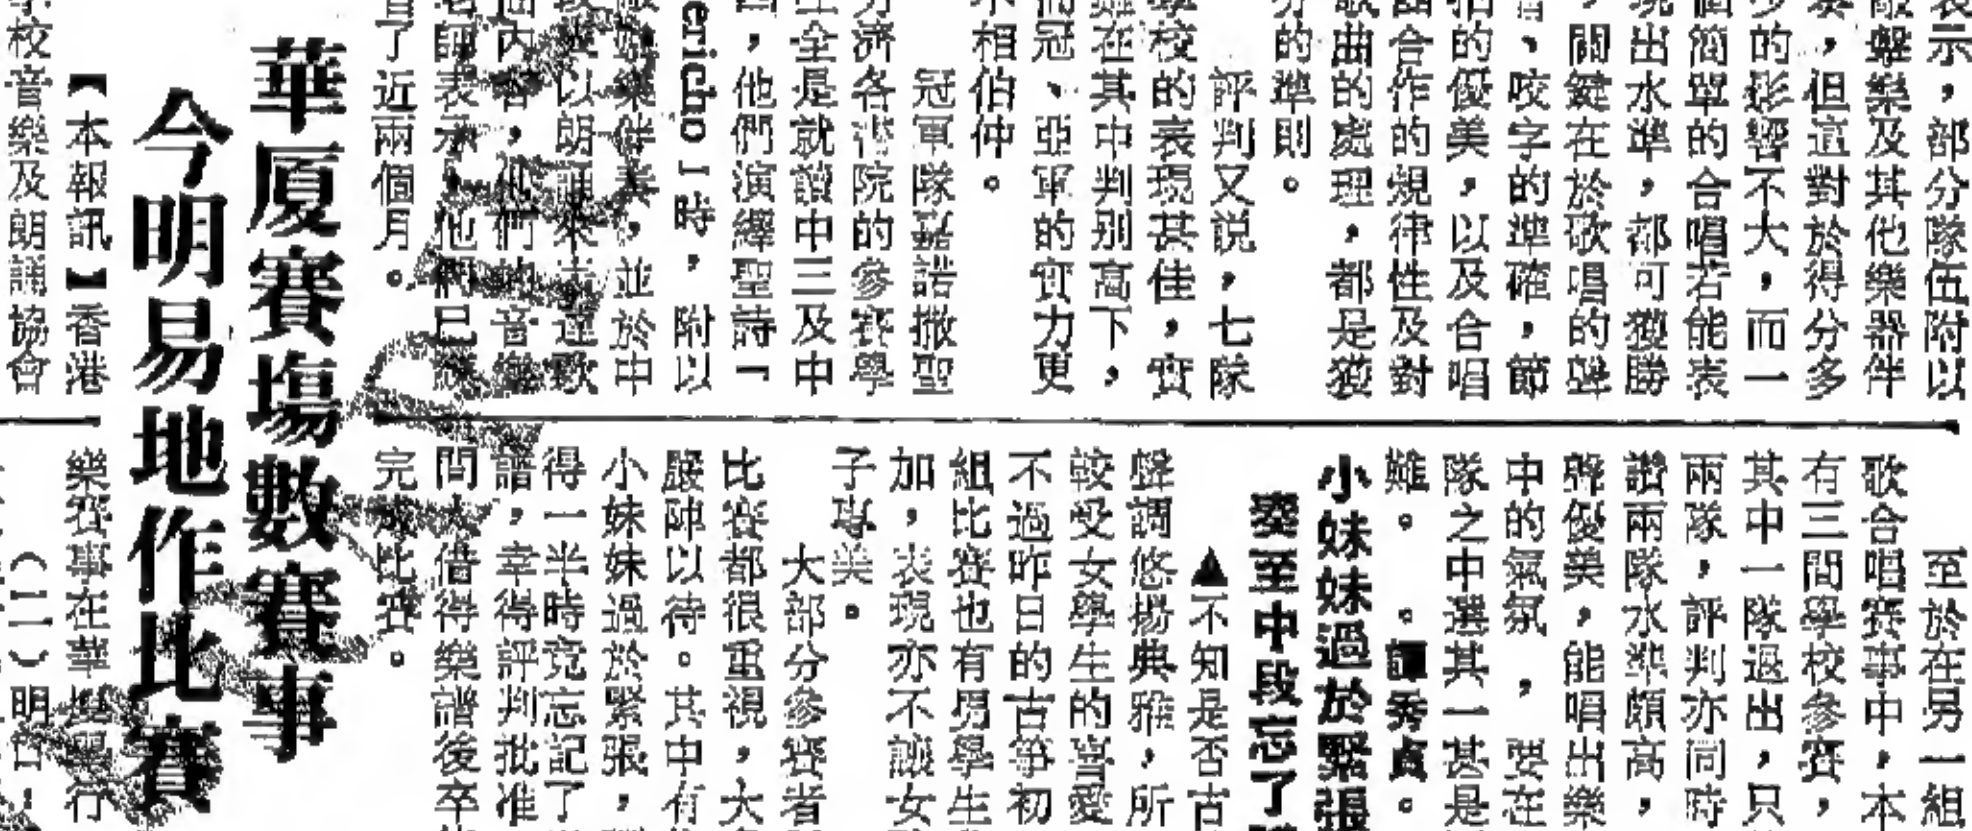 表示，部分隊伍附以
敲擊樂及其他樂器伴
奏，但這對於得分多
少的影響不大，而一
個簡單的合唱若能表
現出水準，都可獲勝
，關鍵在於歌唱的聲
、咬字的準確，節
拍的優美，以及合唱
合作的規律性及對
歌曲的處理，都是獲
分的準則。
評判又説，七隊
學校的表現甚佳，實
難在其中判別高下，
而冠、亞軍的實力更
不相伯仲。
冠軍隊嘉諾撒聖
方濟各書院的參賽學
生全是就讀中三及中
四，他們演繹聖詩「
ericho」時，附以
樂伴奏，並於中
以朗誦來表達歌
內容，他們的音樂
老師表示，他們已練
習了近兩個月。
華厦賽塲數賽事
今明易地作比賽
【本報訊】香港
學校音樂及朗誦協會
至於在另一組
歌合唱賽事中，本
有三間學校參賽，
其中一隊退出，只
兩隊，評判亦同時
讚兩隊水準頗高，
聲優美，能唱出樂
中的氣氛，要在
隊之中選其一甚是
難。。譚秀貞。
小妹妹過於緊張
奏至中段忘了
▲不知是否古
聲調悠揚典雅，所
較受女學生的喜愛
不過昨日的古箏初
組比賽也有男學生
加，表現亦不讓女
子專美。
大部分參賽者
比賽都很重視，大
嚴陣以待。其中有
小妹妹過於緊張，
得一半時竟忘記了
譜，幸得評判批准
問人借得樂譜後卒
完成比賽。
樂賽事在華厦舉行
（二）明日，